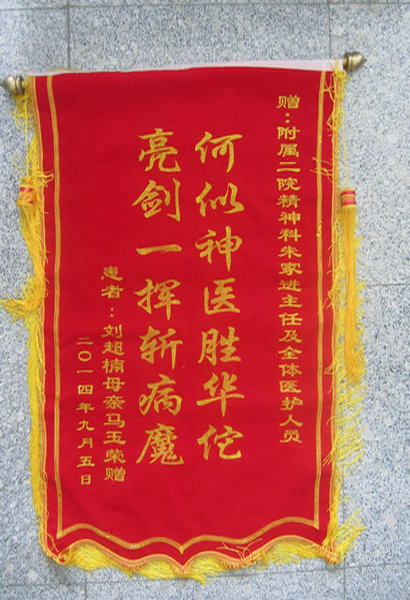 赠：附属二院精神科朱家进主任及全体医护人员
何似神医胜华佗
亮剑一挥斩病魔
患者：刘超楠母亲马玉荣赠
二〇一四年九月五日